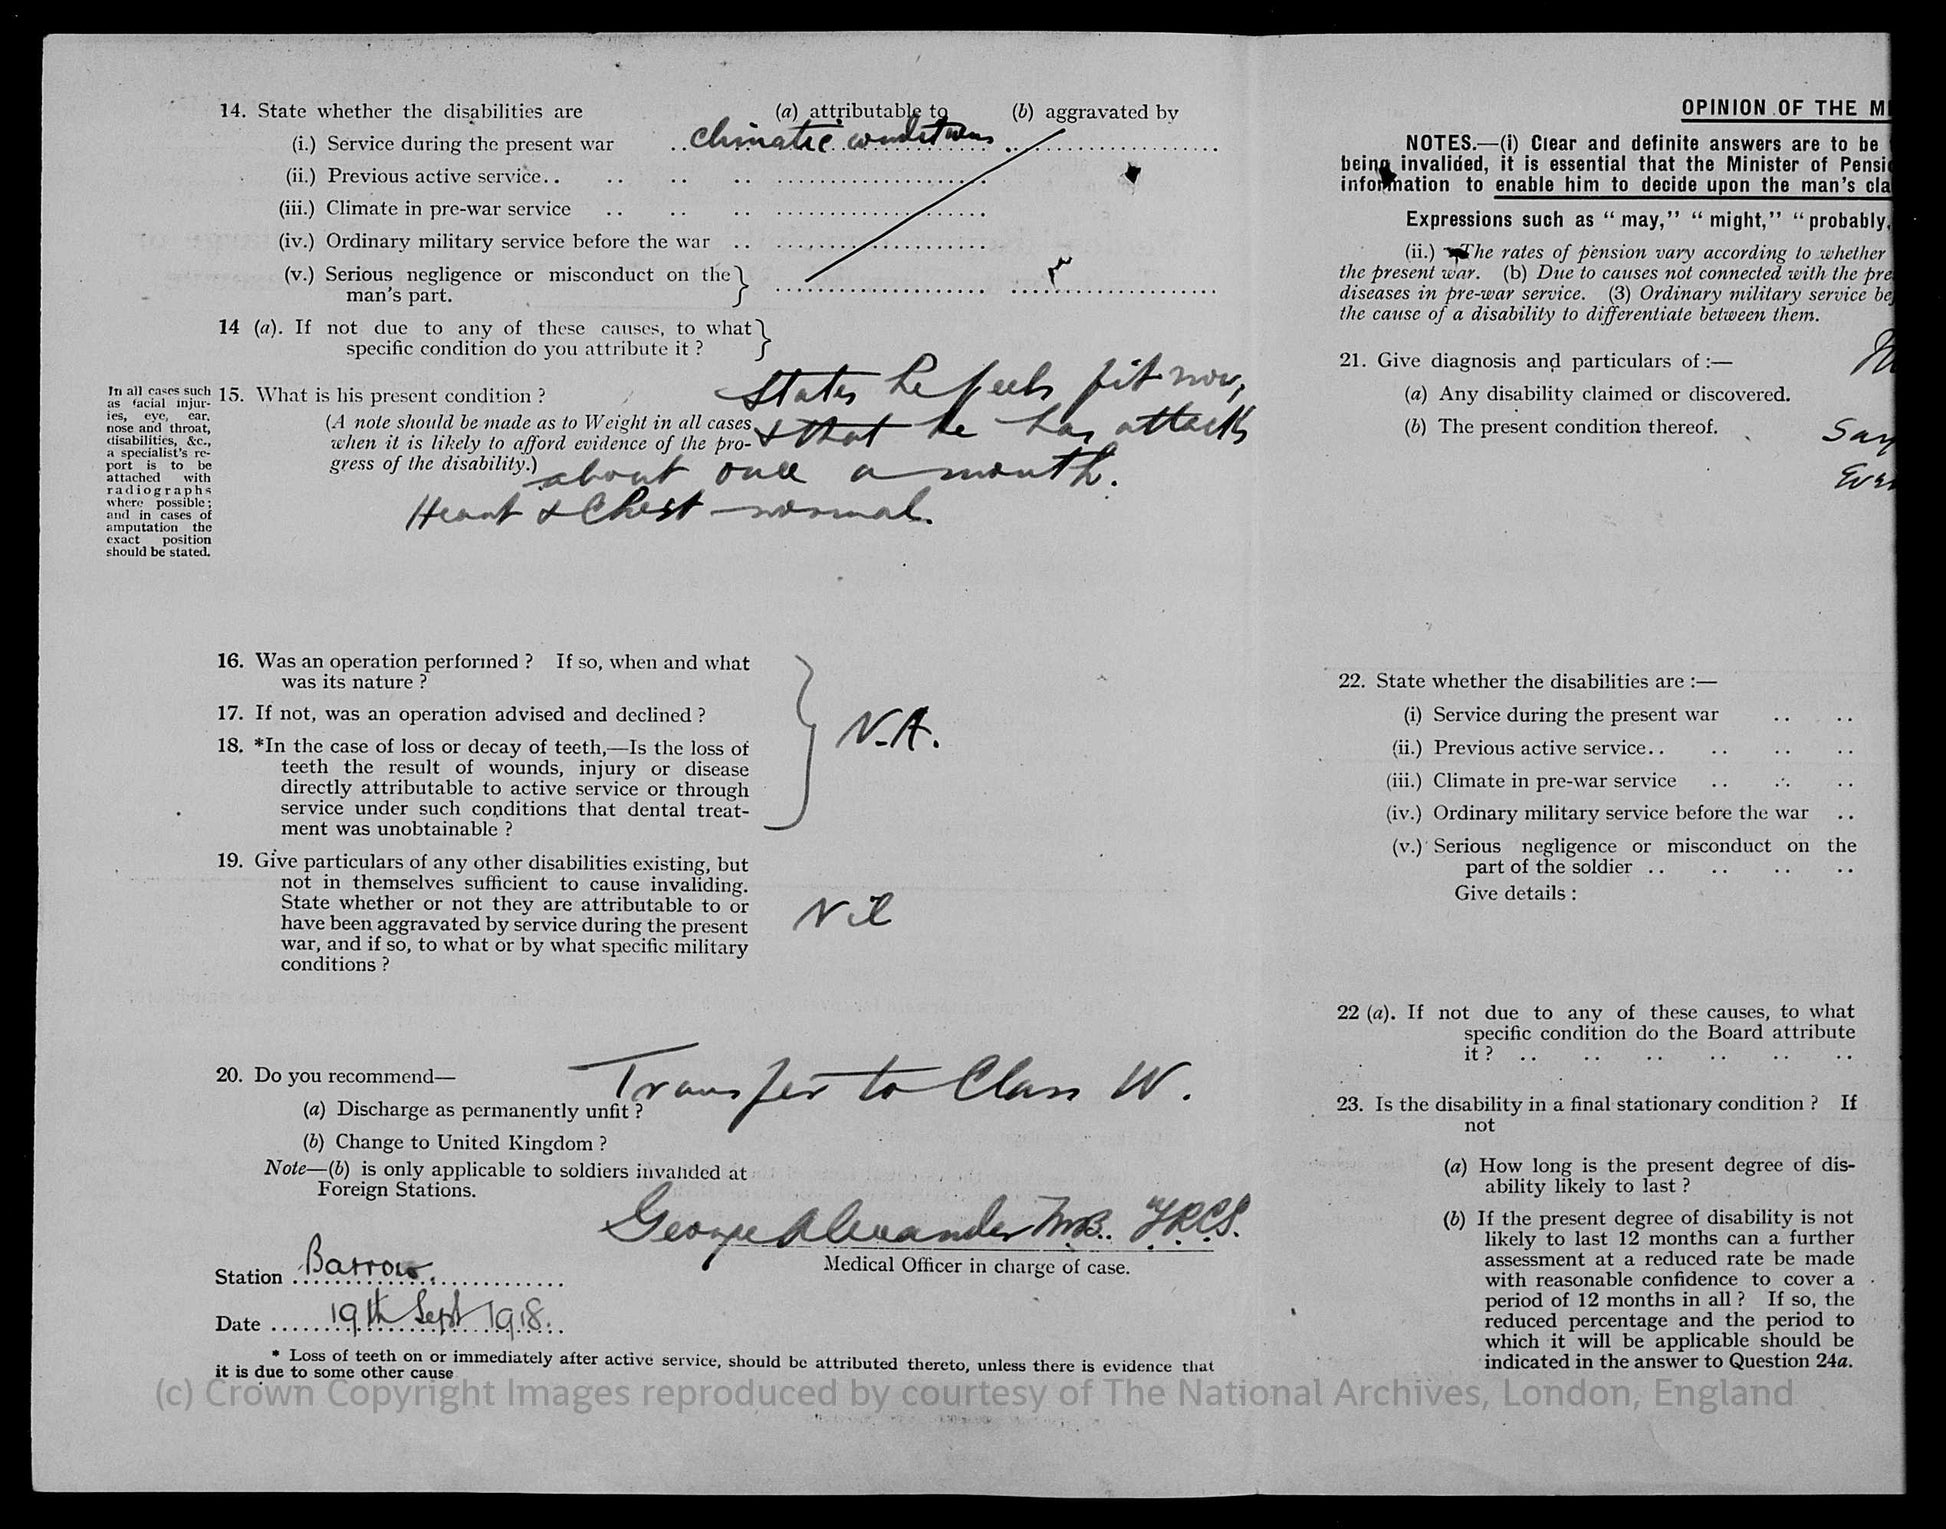 14. State whether the disabilities are (a) attributable to (b) aggravated by
(i.) Service during the present war .. climatic conditions
(ii.) Previous active service.. .. .. ..
(iii.) Climate in pre-war service .. .. ..
(iv.) Ordinary military service before the war ..
(v.) Serious negligence or misconduct on the
man's part.
14 (a). If not due to any of these causes, to what
specific condition do you attribute it ?
In all cases such
as facial injur-
ies, eye, ear,
nose and throat,
disabilities, &c.,
a specialist's re-
port is to be
attached with
radiographs
where possible;
and in cases of
amputation the
exact position
should be stated.
15. What is his present condition ?
(A note should be made as to Weight in all cases
when it is likely to afford evidence of the pro-
gress of the disability.)
States he feels fit now,
& that he has attacks
about once a month.
Heart & Chest normal.
16. Was an operation performed ? If so, when and what
was its nature ?
17. If not, was an operation advised and declined ?
18. *In the case of loss or decay of teeth,—Is the loss of
teeth the result of wounds, injury or disease
directly attributable to active service or through
service under such conditions that dental treat-
ment was unobtainable ?
N.A.
19. Give particulars of any other disabilities existing, but
not in themselves sufficient to cause invaliding.
State whether or not they are attributable to or
have been aggravated by service during the present
war, and if so, to what or by what specific military
conditions ?
Nil
20. Do you recommend—
Transfer to Class W.
(a) Discharge as permanently unfit ?
(b) Change to United Kingdom ?
Note—(b) is only applicable to soldiers invalided at
Foreign Stations.
George Alexander M.B. F.R.C.S.
Medical Officer in charge of case.
Station Barrow.
Date 19th Sept 1918.
* Loss of teeth on or immediately after active service, should be attributed thereto, unless there is evidence that
it is due to some other cause
OPINION OF THE M
NOTES.—(i) Clear and definite answers are to be
being invalided, it is essential that the Minister of Pensi
information to enable him to decide upon the man's cla
Expressions such as "may," "might," "probably,
(ii.) The rates of pension vary according to whether
the present war. (b) Due to causes not connected with the pre
diseases in pre-war service. (3) Ordinary military service be
the cause of a disability to differentiate between them.
21. Give diagnosis and particulars of :—
(a) Any disability claimed or discovered.
(b) The present condition thereof.
22. State whether the disabilities are :—
(i) Service during the present war .. ..
(ii.) Previous active service.. .. .. ..
(iii.) Climate in pre-war service .. .. ..
(iv.) Ordinary military service before the war ..
(v.) Serious negligence or misconduct on the
part of the soldier .. .. .. ..
Give details :
22 (a). If not due to any of these causes, to what
specific condition do the Board attribute
it ? .. .. .. .. .. ..
23. Is the disability in a final stationary condition ? If
not
(a) How long is the present degree of dis-
ability likely to last ?
(b) If the present degree of disability is not
likely to last 12 months can a further
assessment at a reduced rate be made
with reasonable confidence to cover a
period of 12 months in all ? If so, the
reduced percentage and the period to
which it will be applicable should be
indicated in the answer to Question 24a.
(c) Crown Copyright Images reproduced by courtesy of The National Archives, London, England